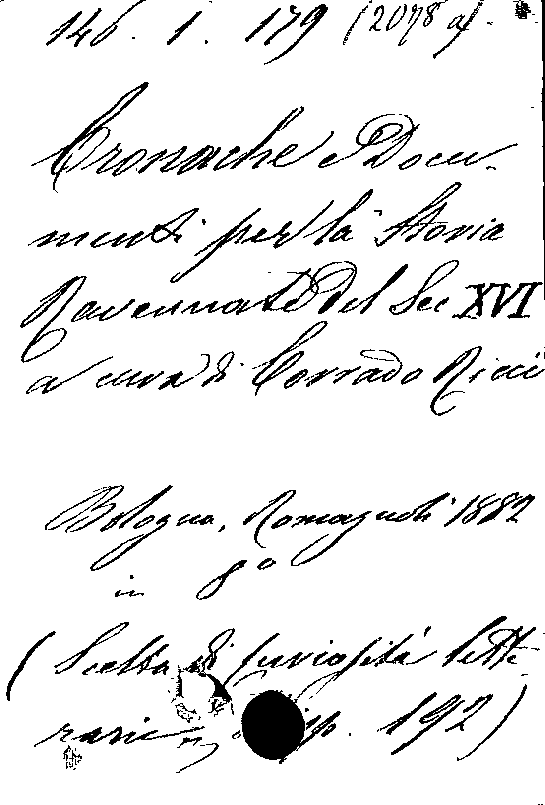 146. 1. 179 (2078 a).
Cronache e Docu-
menti per la Storia
Ravennate Del Sec XVI
a cura di Corrado Ricci
Bologna, Romagnoli 1882
in 8º
(Scelta di curiosità lette
rarie 192)